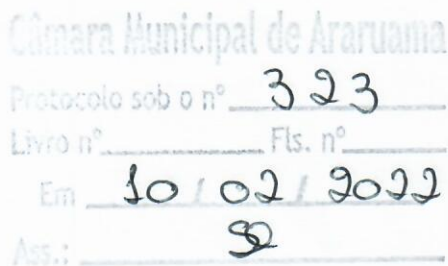 Câmara Municipal de Araruama
Protocolo sob o nº 323
Livro nº Fls. nº
Em 10 / 02 / 2022
Ass.: